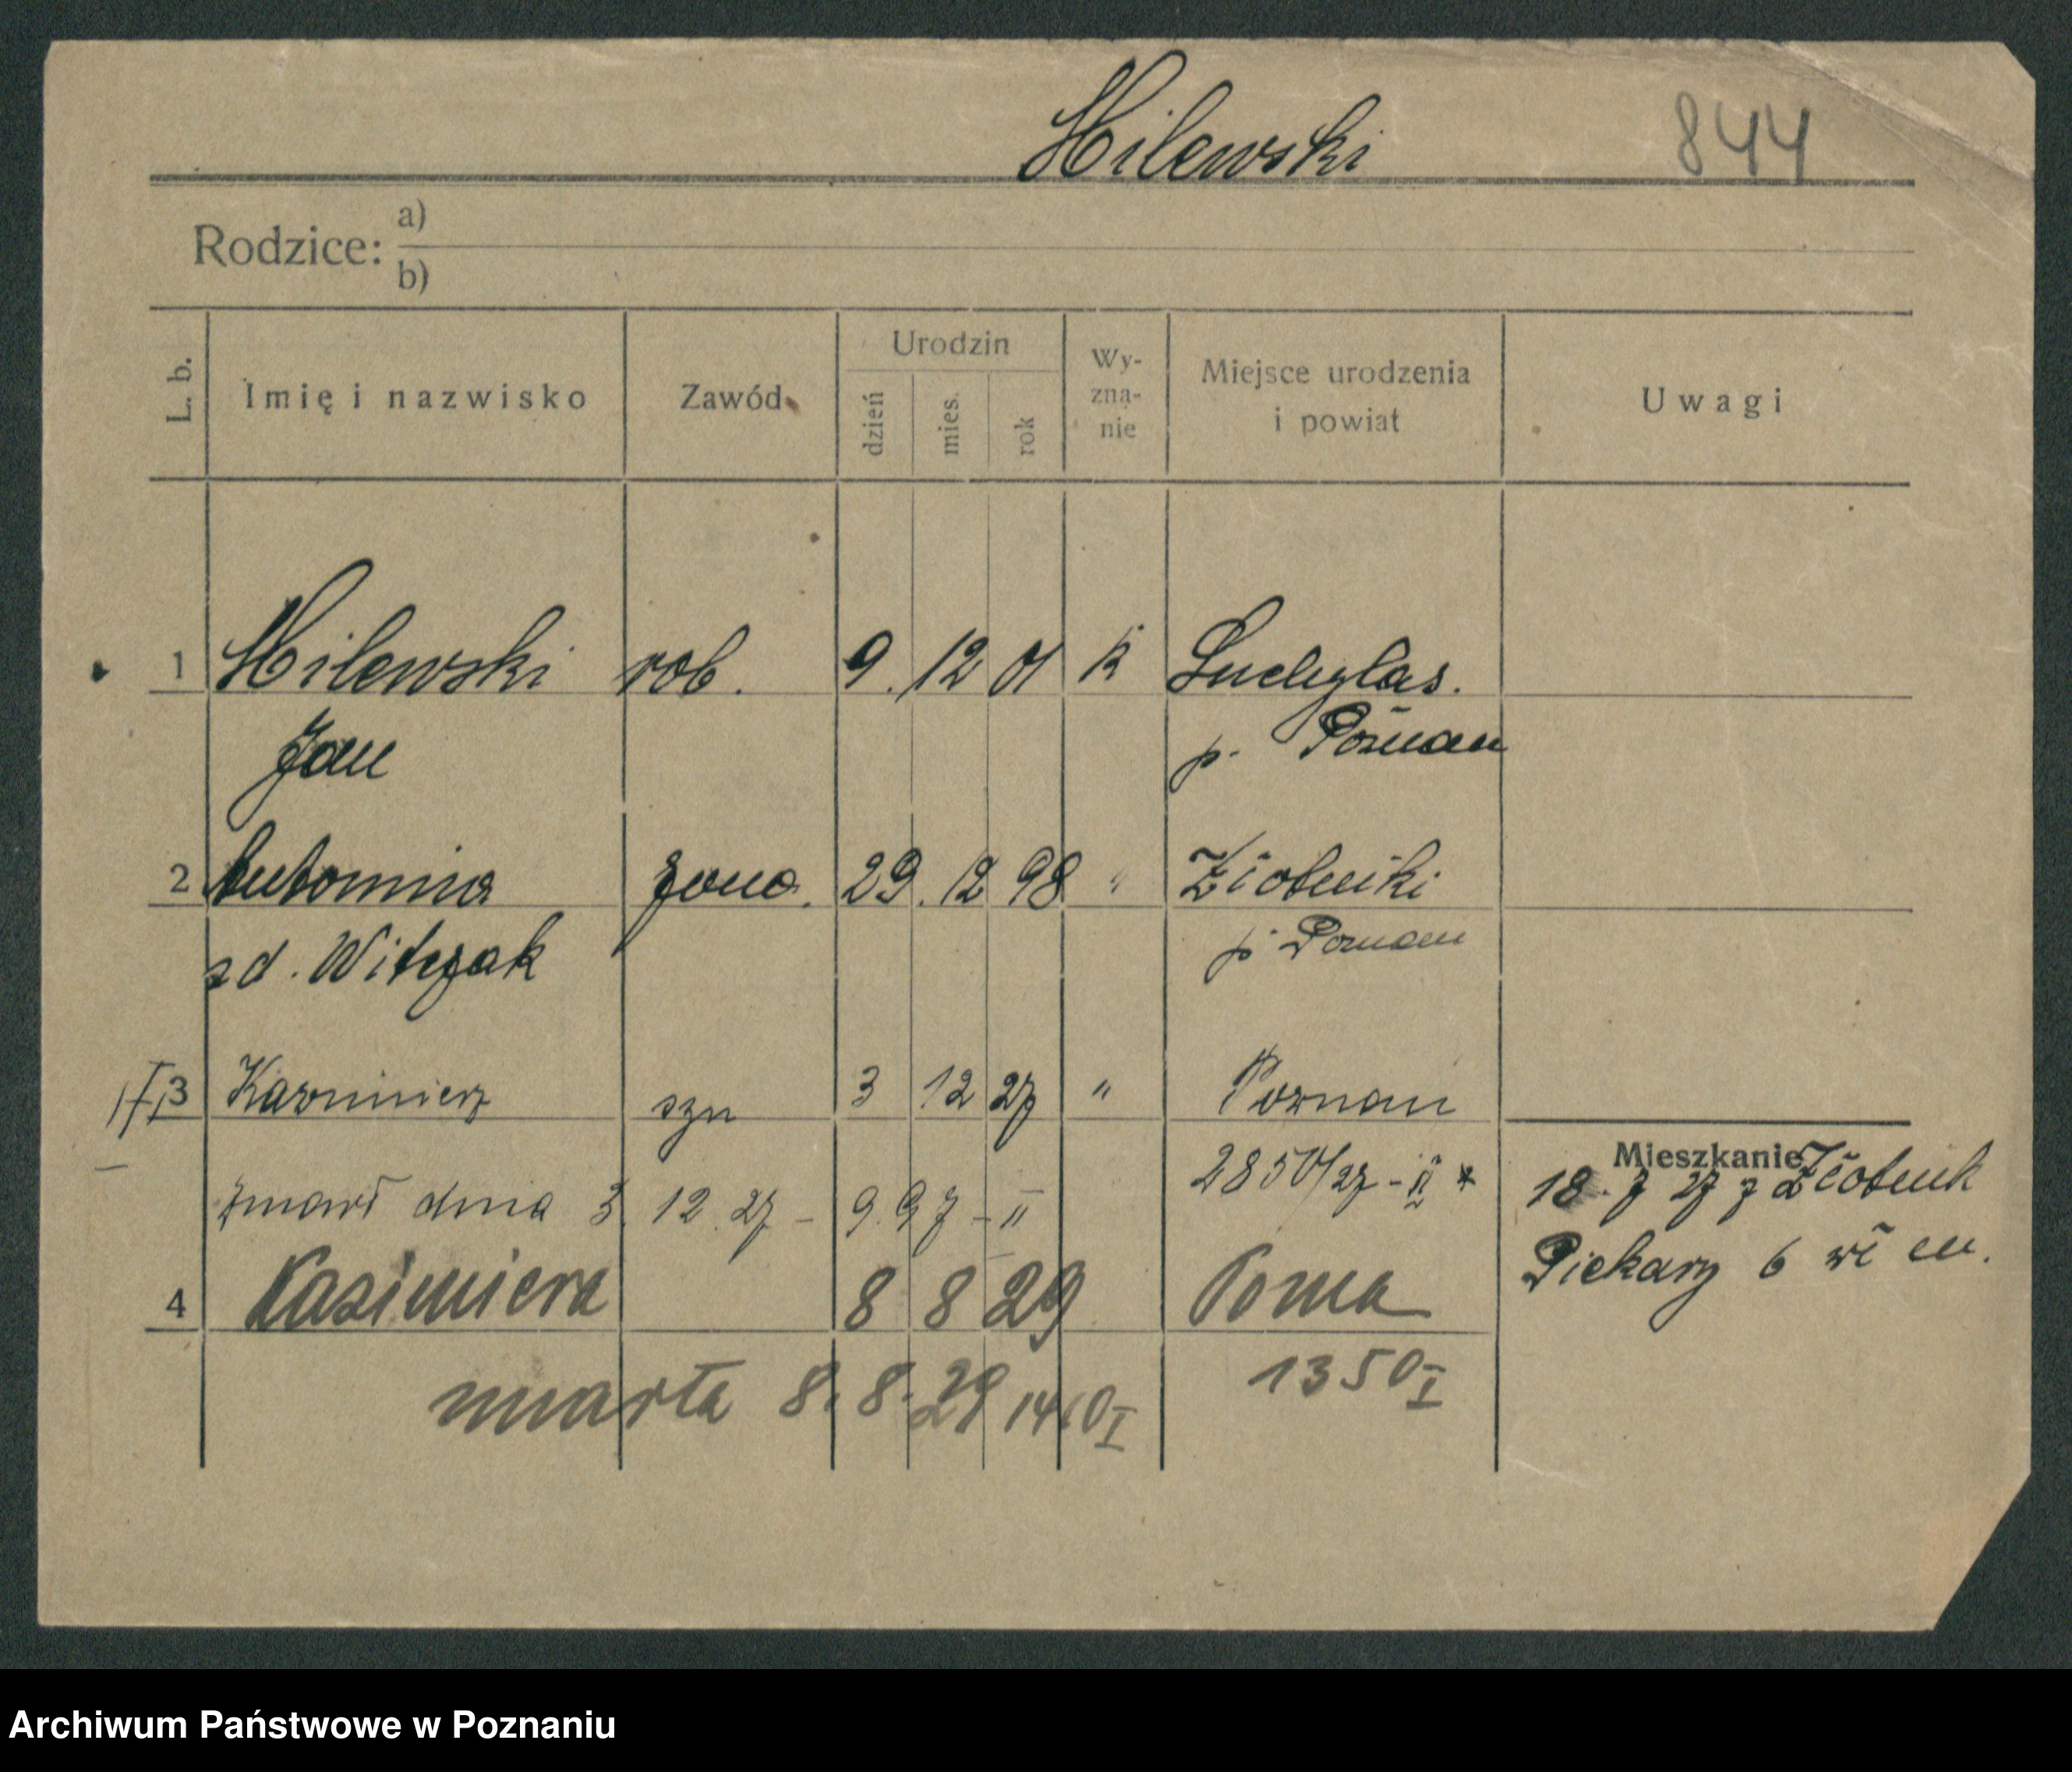 Milewski 844
Rodzice: a)
b)
L. b. Imię i nazwisko Zawód Urodzin dzień mies. rok Wy-zna-nie Miejsce urodzenia i powiat Uwagi
1 Milewski rob. 9. 12 01 k Suchylas.
Jan p. Poznan
2 żona. 29. 12 98 " Złotniki
zd. Witczak p. Poznan
3 Kazimierz syn 3 12 27 " Poznań
Mieszkanie
zmarł dnia 3. 12. 27 - 997 - II 2850/27 - II *
18. 7 27 z Złotnik
Piekary 6 wł m.
4 Kazimiera 8 8 29 Pozna
zmarła 8. 8. 29 1410 I 1350 I
Archiwum Państwowe w Poznaniu